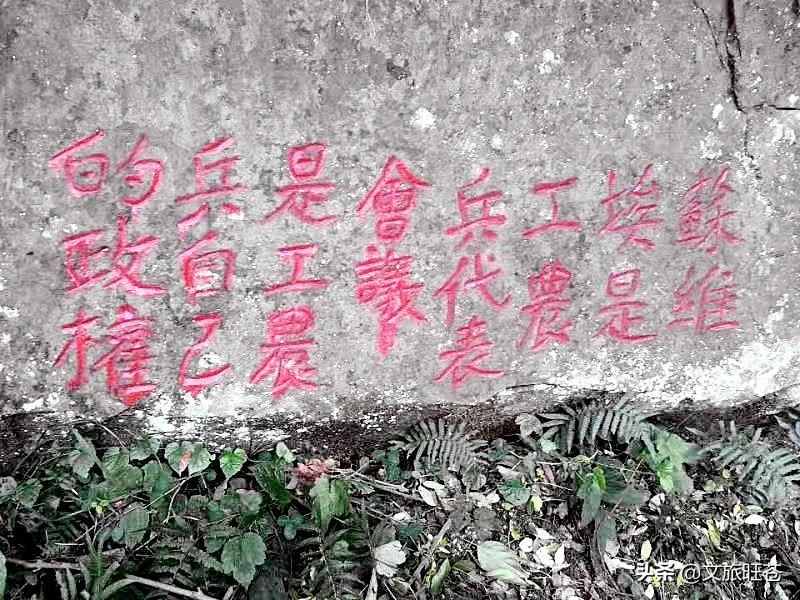 蘇维
埃是
工農
兵代表
會議
是工農
兵自己
的政權
头条 @文旅旺苍